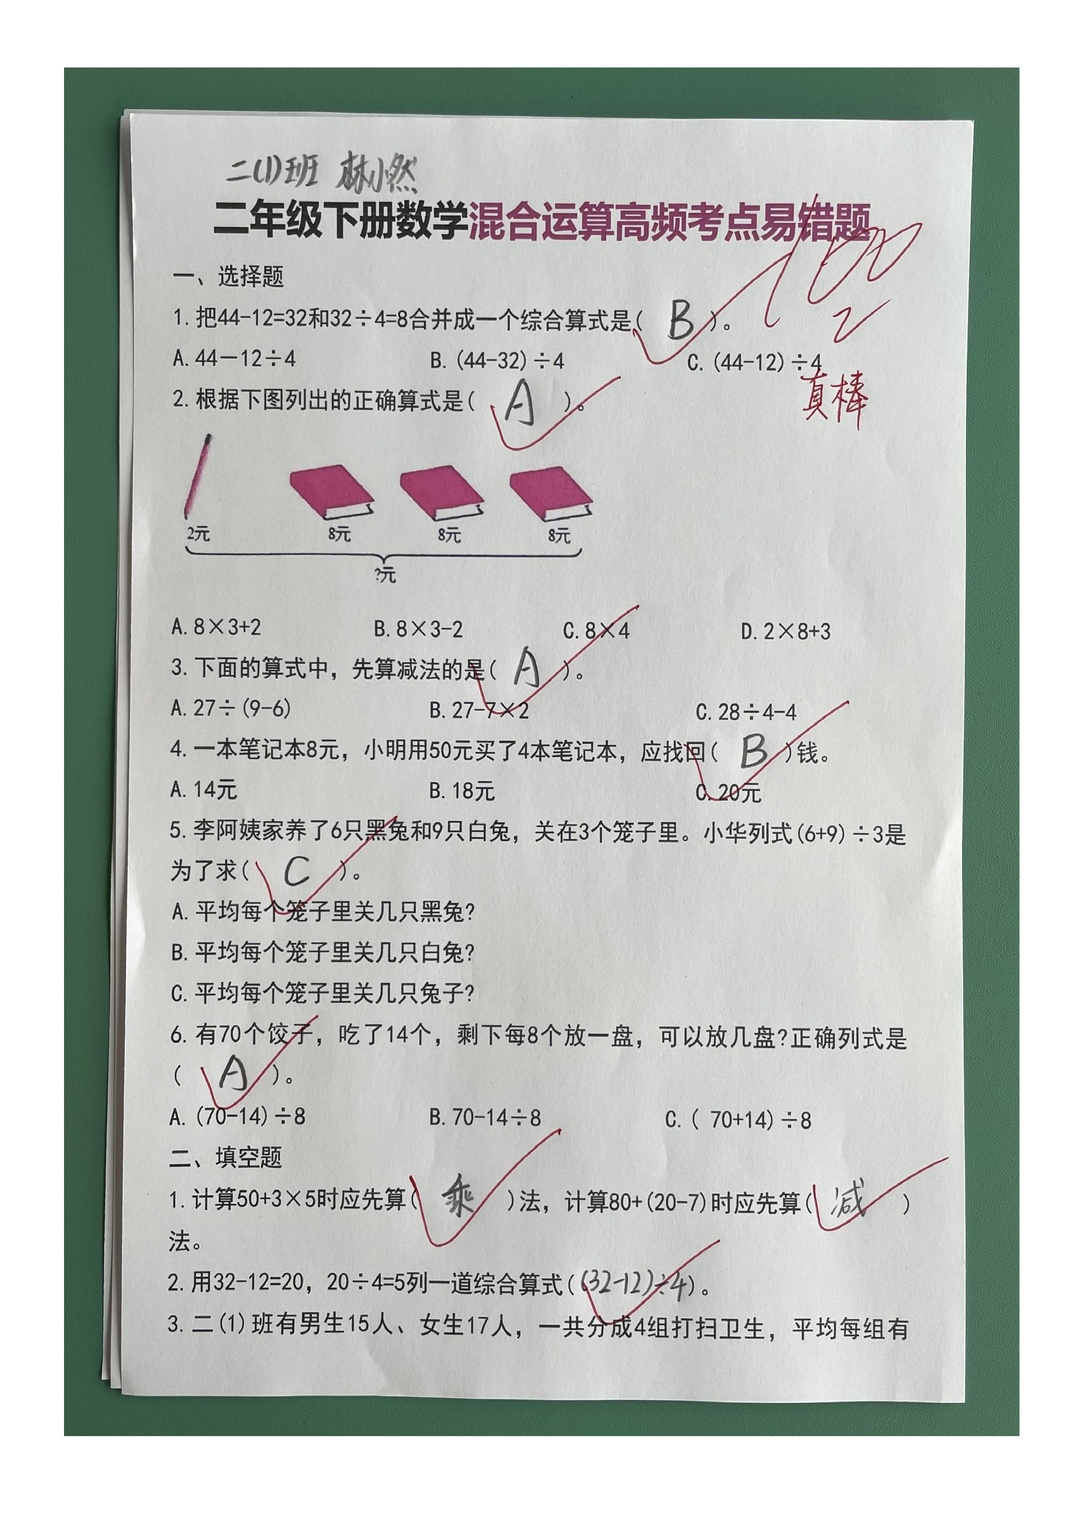 二(1)班 林小然
二年级下册数学混合运算高频考点易错题
100
真棒
一、选择题
1.把44-12=32和32÷4=8合并成一个综合算式是( B )。
A.44－12÷4 B.(44-32)÷4 C.(44-12)÷4
2.根据下图列出的正确算式是( A )。
2元 8元 8元 8元
?元
A.8×3+2 B.8×3-2 C.8×4 D.2×8+3
3.下面的算式中，先算减法的是( A )。
A.27÷(9-6) B.27-7×2 C.28÷4-4
4.一本笔记本8元，小明用50元买了4本笔记本，应找回( B )钱。
A.14元 B.18元 C.20元
5.李阿姨家养了6只黑兔和9只白兔，关在3个笼子里。小华列式(6+9)÷3是
为了求( C )。
A.平均每个笼子里关几只黑兔?
B.平均每个笼子里关几只白兔?
C.平均每个笼子里关几只兔子?
6.有70个饺子，吃了14个，剩下每8个放一盘，可以放几盘?正确列式是
( A )。
A.(70-14)÷8 B.70-14÷8 C.( 70+14)÷8
二、填空题
1.计算50+3×5时应先算( 乘 )法，计算80+(20-7)时应先算( 减 )
法。
2.用32-12=20，20÷4=5列一道综合算式((32-12)÷4)。
3.二(1)班有男生15人、女生17人，一共分成4组打扫卫生，平均每组有